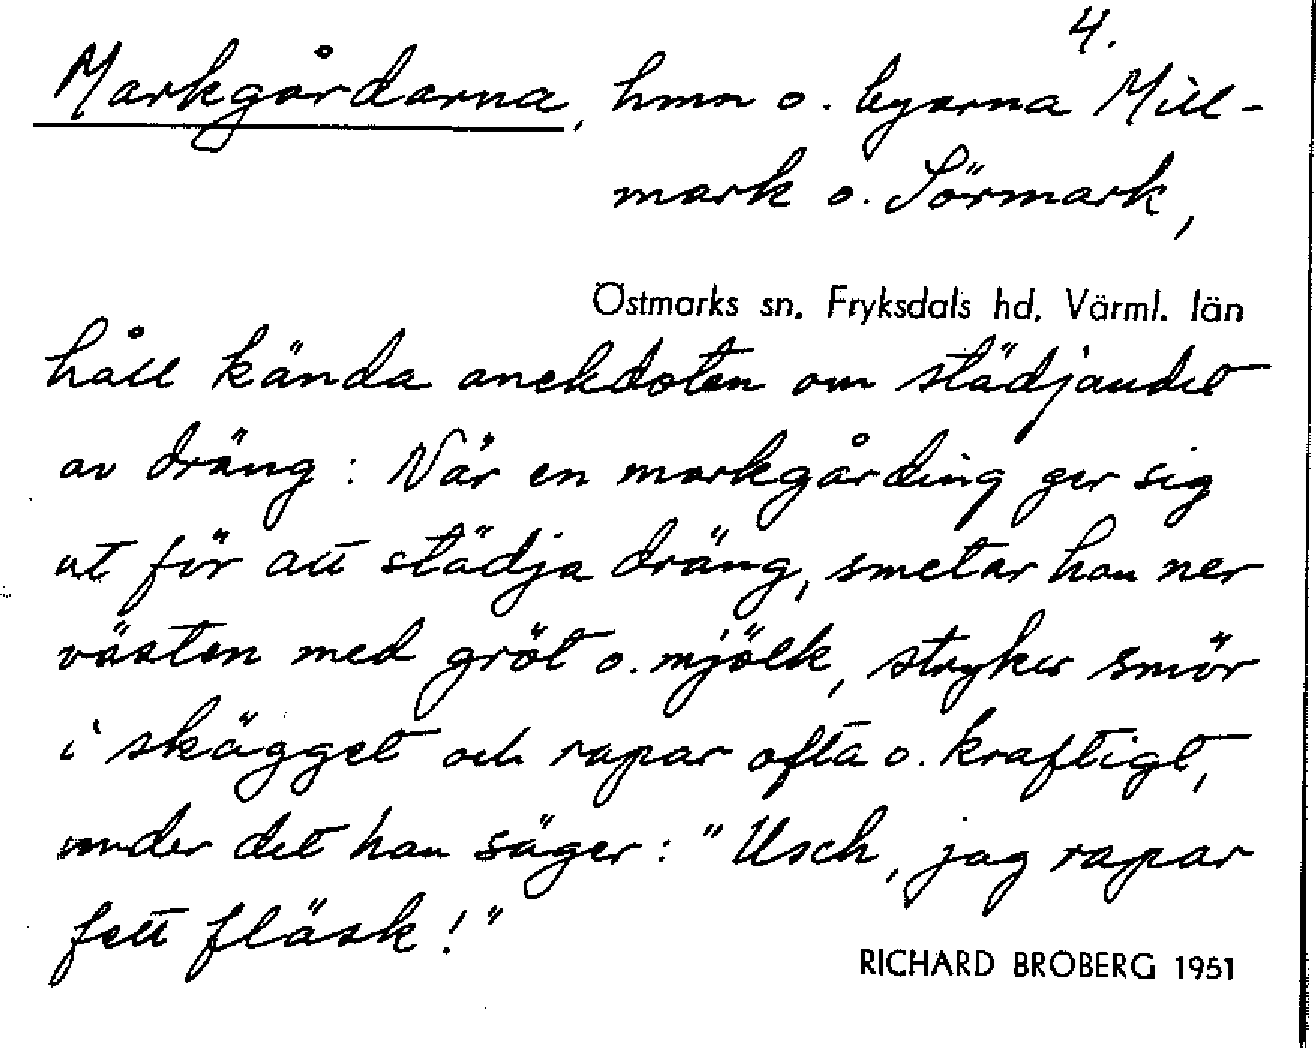 4.
Markgårdarna, hmn o. byarna Mill-
mark o. Sörmark,
Östmarks sn. Fryksdals hd. Värml. län
håll kända anekdoten om städjandet
av dräng: När en markgårding ger sig
ut för att städja dräng, smetar han ner
västen med gröt o. mjölk, stryker smör
i skägget och rapar ofta o. kraftigt,
under det han säger: "Usch, jag rapar
fett fläsk!"
RICHARD BROBERG 1951